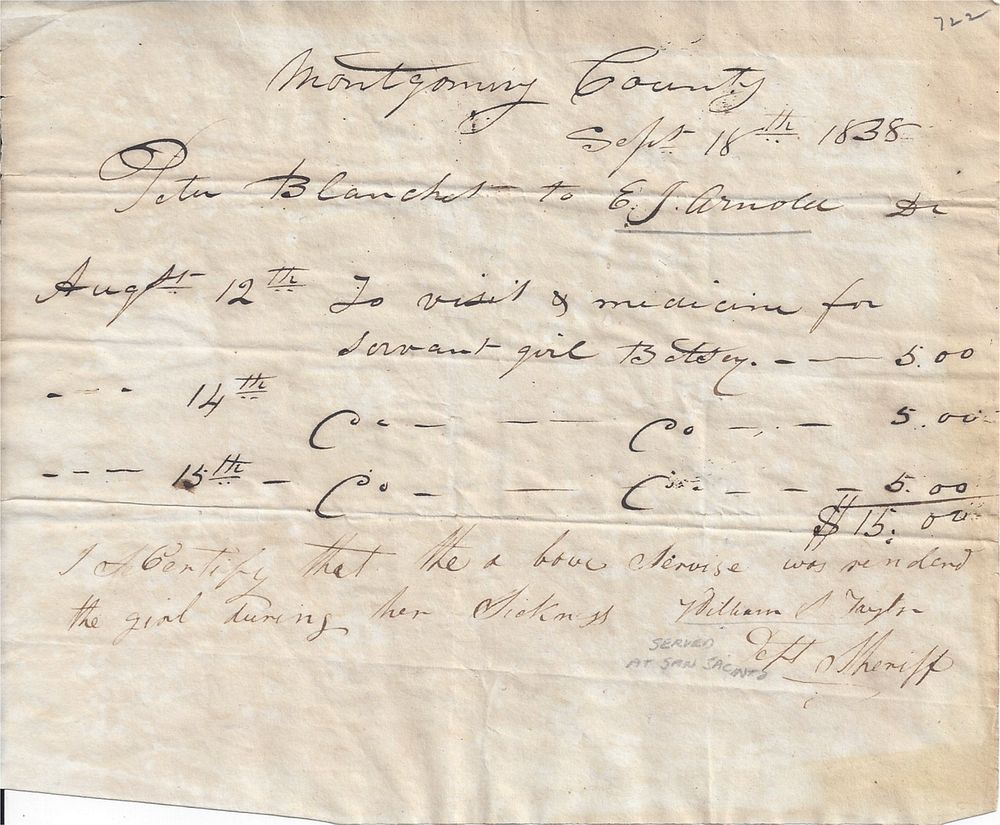 722
Montgomery County
Sept 18th 1838
Peter Blanchet to E. J. Arnold Dr
Augst 12th To visit & medicine for
servant girl Betsey. - — 5.00
- - - 14th
Co - — Co - - - 5.00
- - - 15th - Co - — Co - - - 5.00
$15.00
I Certify that the a bove Servise was renderd
the girl during her Sickness William S Taylor
SERVED
AT SAN JACINTO
Dept Sheriff